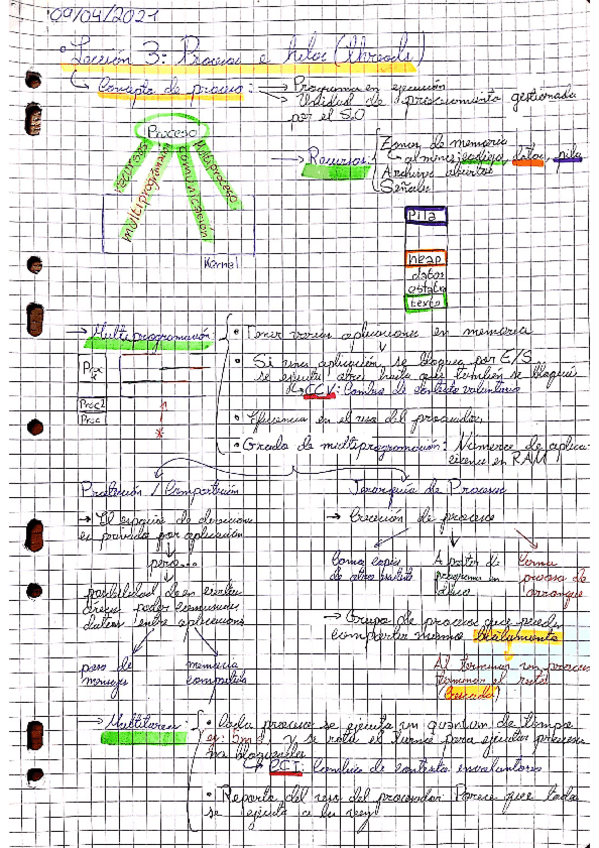 09/04/2021
Lección 3: Procesos e hilos (threads)
Concepto de proceso: → Programa en ejecución
→ Unidad de procesamiento gestionada
por el S.O
Proceso
recursos
multiprogramación
comunicación
Multiproceso
Kernel
→ Recursos:
Zonas de memoria
al menos: código, datos, pila
Archivos abiertos
Señales
Pila
heap
datos
estáto
texto
→ Multiprogramación:
• Tener varias aplicaciones en memoria
• Si una aplicación se bloquea por E/S
se ejecuta otra hasta que también se bloquea
CCV: Cambio de contexto voluntario
• Eficiencia en el uso del procesador
• Grado de multiprogramación: Número de aplica-
ciones en RAM
Proc
Proc2
Proc
Protección / Compartición
→ El espacio de direcciones
es privado por aplicación
pero...
posibilidad de
poder comunicar
datos entre aplicaciones
paso de
mensajes
memoria
compartida
Jerarquía de Procesos
→ Creación de procesos
Como copia
de otro
A partir de
programa en
disco
Como
proceso de
arranque
→ Grupo de procesos que pueden
compartir mismo tratamiento
Al terminar un proceso
terminar el resto
(Cascada)
→ Multitarea:
• Cada proceso se ejecuta un quantum de tiempo
ej: 5ms y se rota el turno para ejecutar procesos
no bloqueados
CCI: Cambio de contexto involuntario
• Reparto del uso del procesador Parece que todo
se ejecuta a la vez